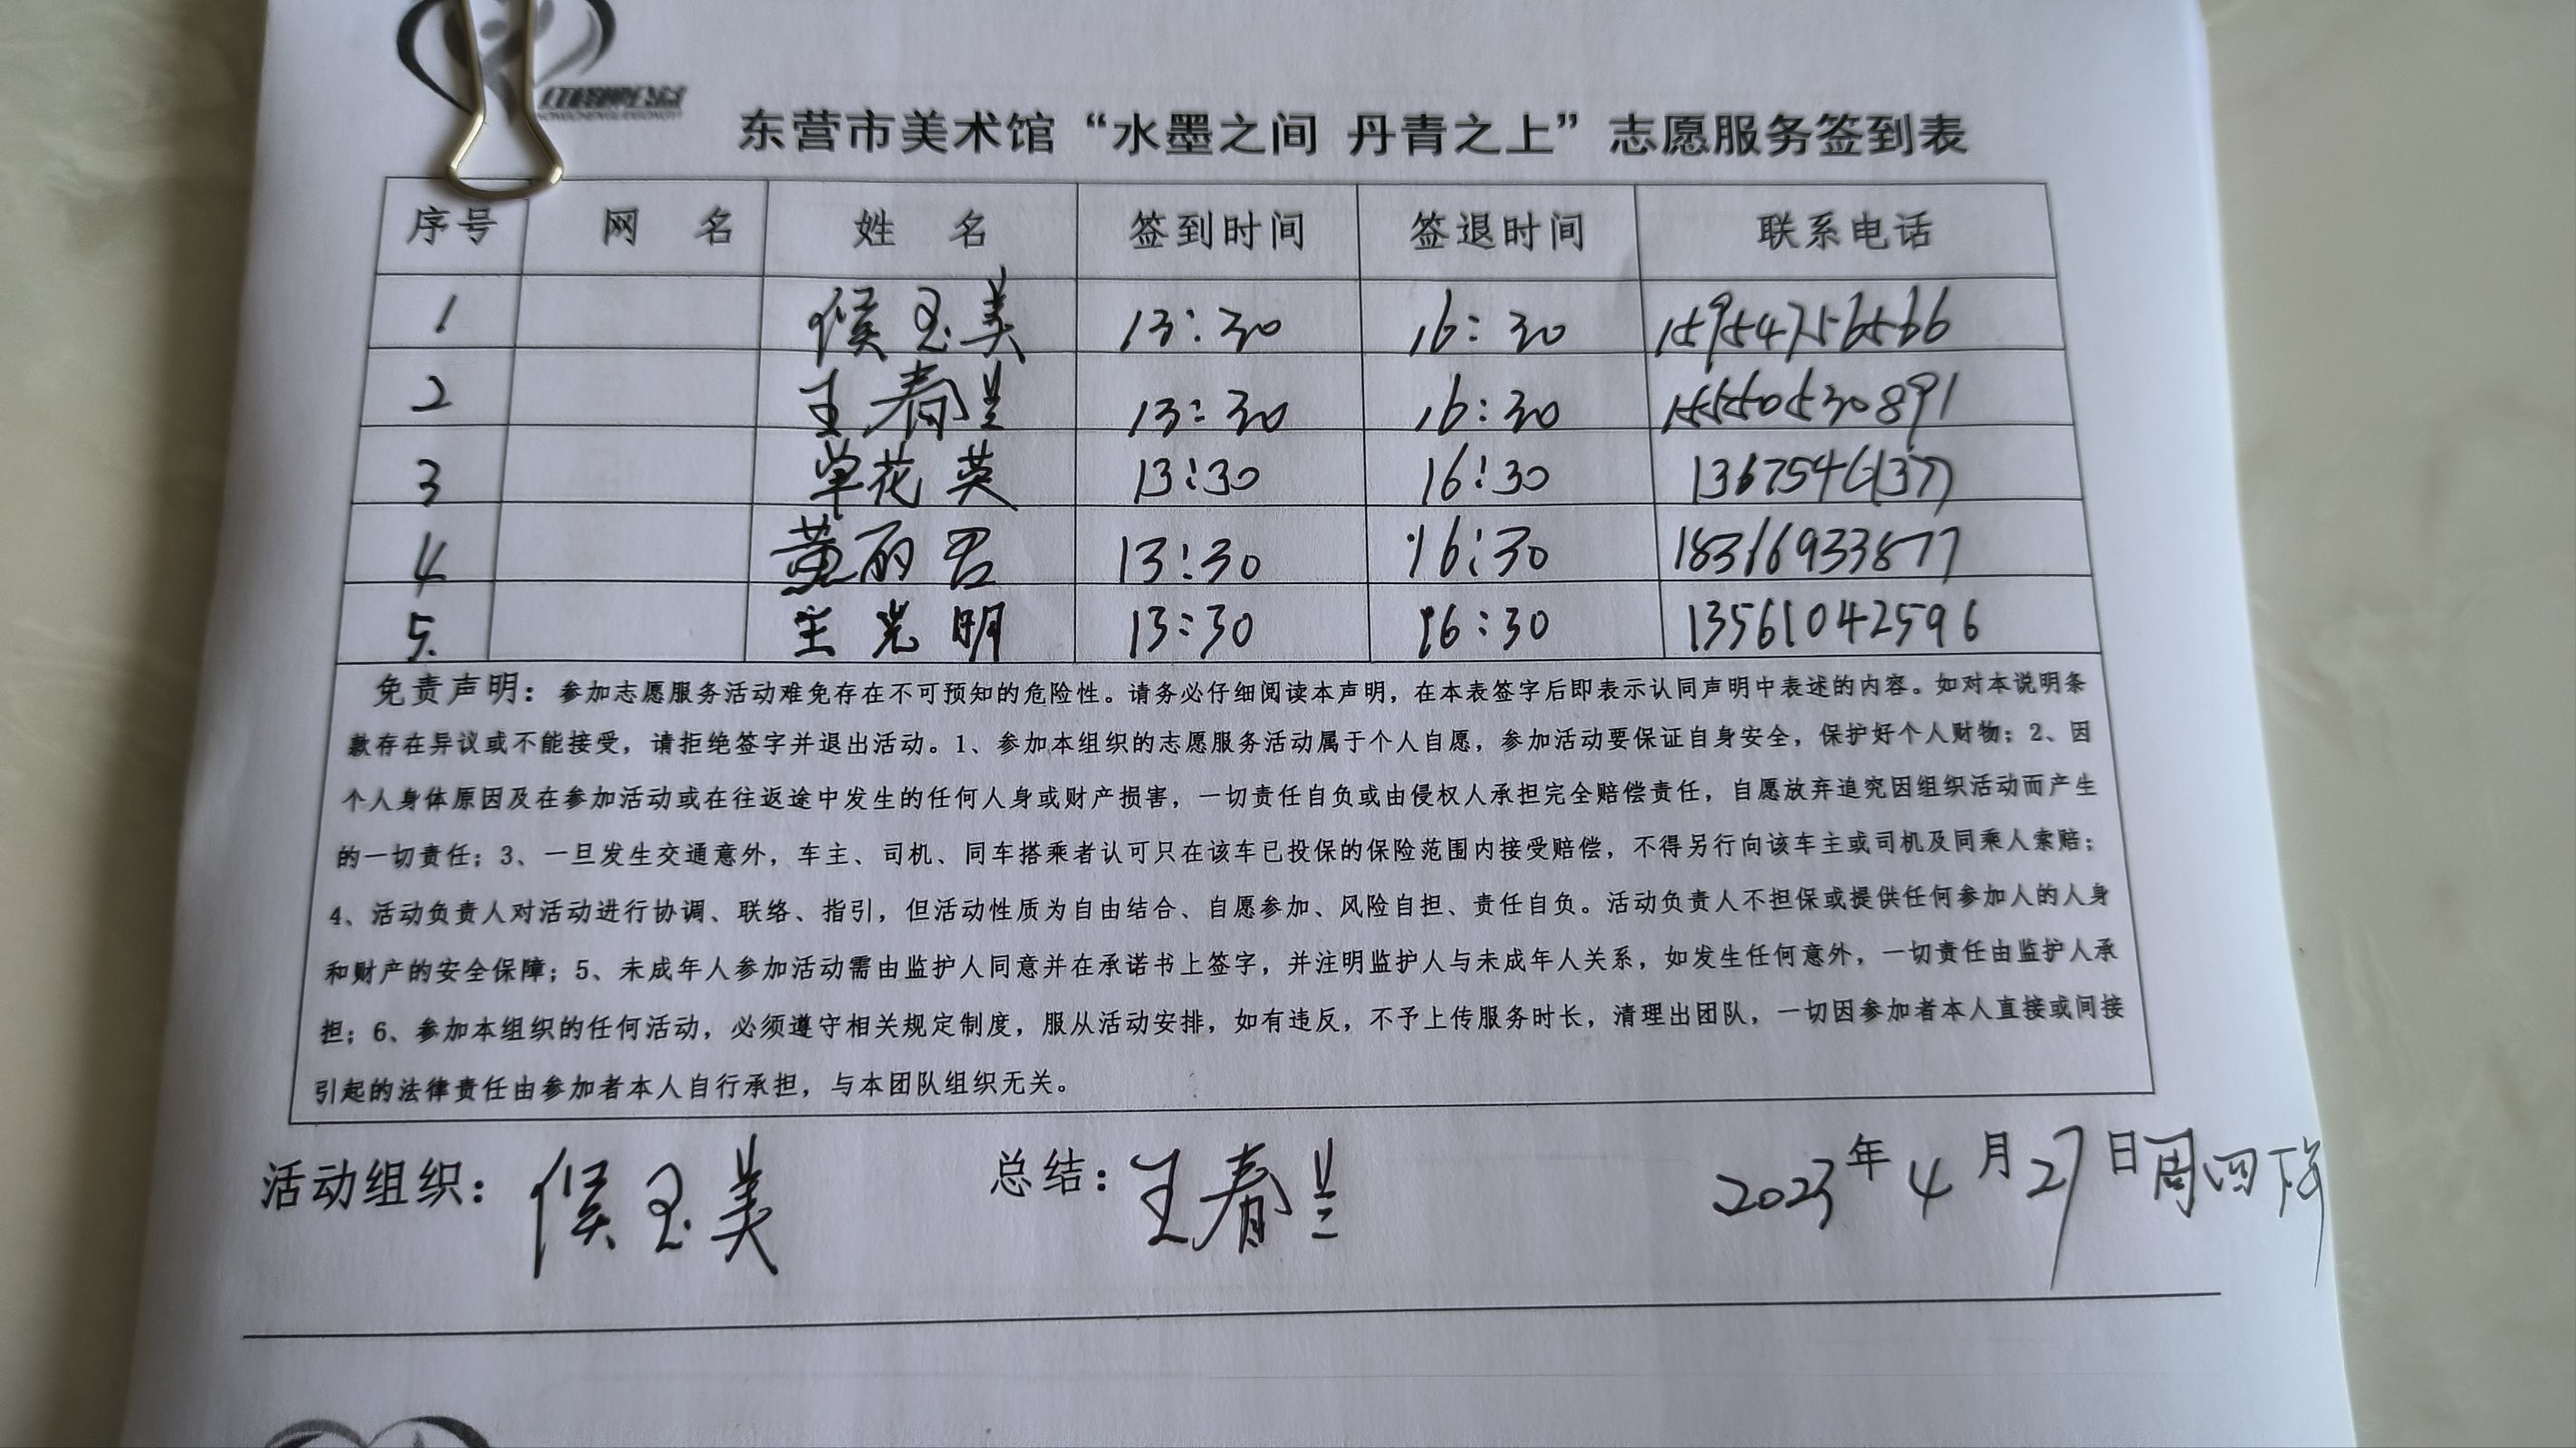 东营市美术馆“水墨之间 丹青之上”志愿服务签到表
序号 网 名 姓 名 签到时间 签退时间 联系电话
1 候玉美 13:30 16:30 15954756566
2 王春兰 13:30 16:30 15550530891
3 单花英 13:30 16:30
4 黄丽君 13:30 16:30 18316933877
5. 王光明 13:30 16:30 13561042596
免责声明：参加志愿服务活动难免存在不可预知的危险性。请务必仔细阅读本声明，在本表签字后即表示认同声明中表述的内容。如对本说明条
款存在异议或不能接受，请拒绝签字并退出活动。1、参加本组织的志愿服务活动属于个人自愿，参加活动要保证自身安全，保护好个人财物；2、因
个人身体原因及在参加活动或在往返途中发生的任何人身或财产损害，一切责任自负或由侵权人承担完全赔偿责任，自愿放弃追究因组织活动而产生
的一切责任；3、一旦发生交通意外，车主、司机、同车搭乘者认可只在该车已投保的保险范围内接受赔偿，不得另行向该车主或司机及同乘人索赔；
4、活动负责人对活动进行协调、联络、指引，但活动性质为自由结合、自愿参加、风险自担、责任自负。活动负责人不担保或提供任何参加人的人身
和财产的安全保障；5、未成年人参加活动需由监护人同意并在承诺书上签字，并注明监护人与未成年人关系，如发生任何意外，一切责任由监护人承
担；6、参加本组织的任何活动，必须遵守相关规定制度，服从活动安排，如有违反，不予上传服务时长，清理出团队，一切因参加者本人直接或间接
引起的法律责任由参加者本人自行承担，与本团队组织无关。
活动组织：候玉美 总结：王春兰 2023年4月27日周四下午